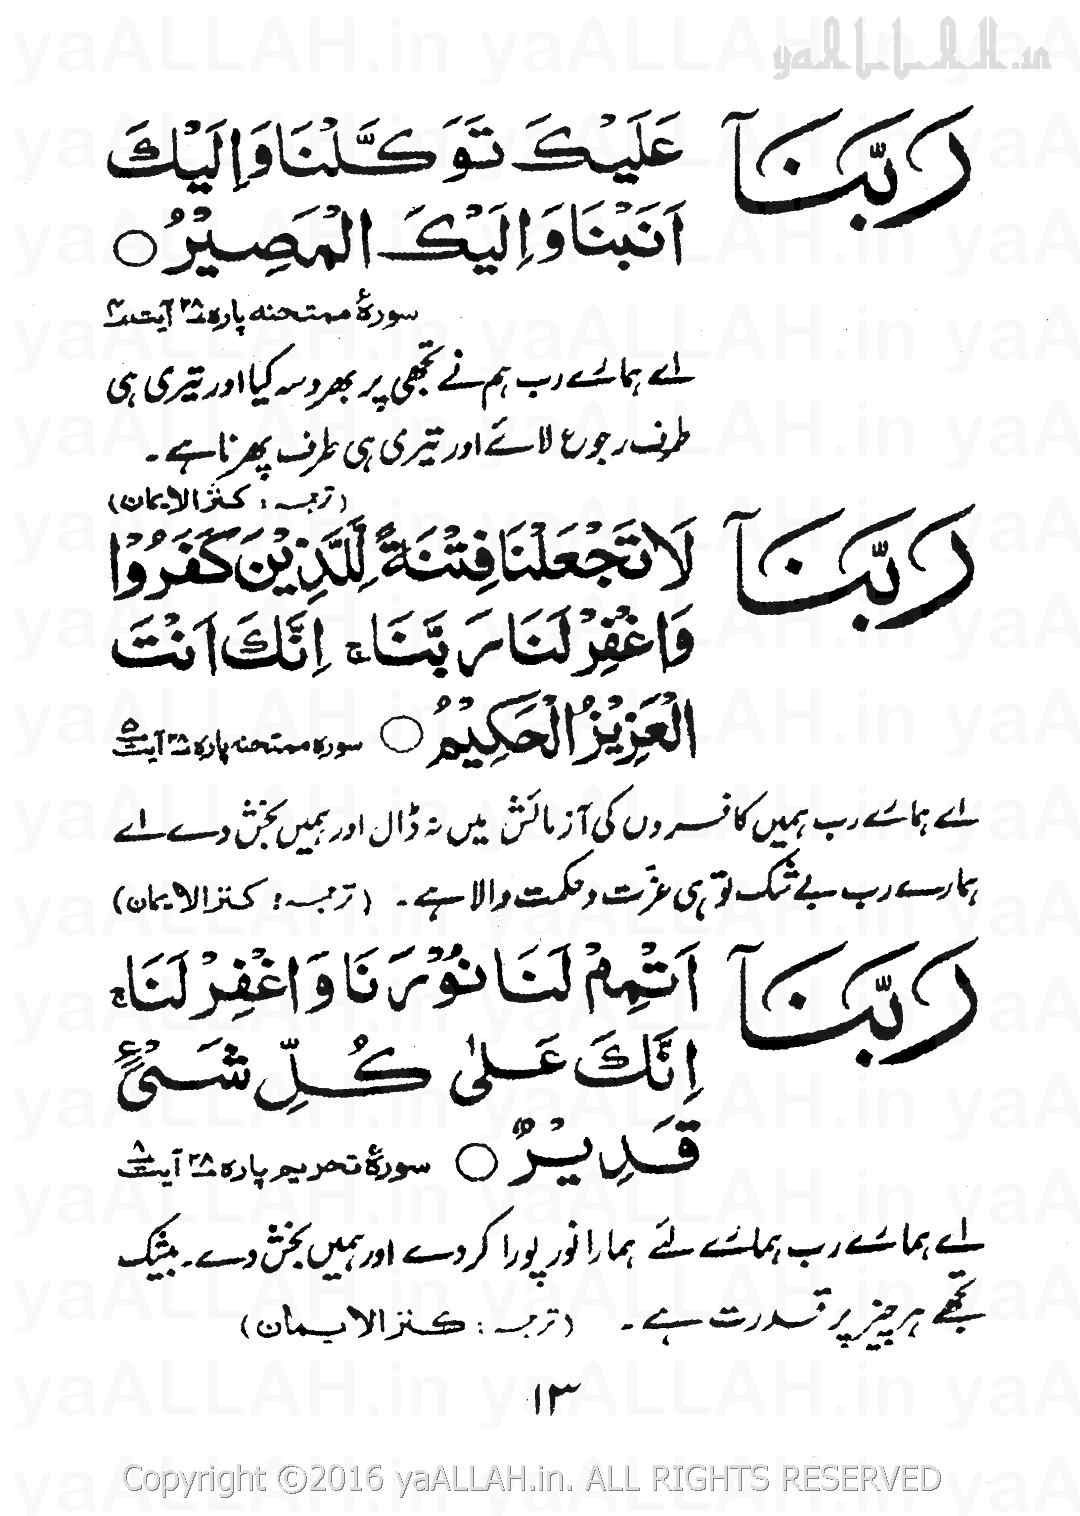 yaALLAH.in
رَبَّنَآ عَلَيْكَ تَوَكَّلْنَا وَاِلَيْكَ
اَنَبْنَا وَاِلَيْكَ الْمَصِيْرُ ○
سورۂ ممتحنہ پارہ ۲۸ آیت ۴
اے ہمارے رب ہم نے تجھی پر بھروسہ کیا اور تیری ہی
طرف رجوع لائے اور تیری ہی طرف پھرنا ہے ۔
(ترجمہ : کنزالایمان)
رَبَّنَآ لَا تَجْعَلْنَا فِتْنَةً لِّلَّذِيْنَ كَفَرُوْا
وَاغْفِرْ لَنَا رَبَّنَا ۚ اِنَّكَ اَنْتَ
الْعَزِيْزُ الْحَكِيْمُ ○ سورہ ممتحنہ پارہ ۲۸ آیت ۵
اے ہمارے رب ہمیں کافروں کی آزمائش میں نہ ڈال اور ہمیں بخش دے اے
ہمارے رب بے شک تو ہی عزّت و حکمت والا ہے ۔ (ترجمہ : کنزالایمان)
رَبَّنَآ اَتْمِمْ لَنَا نُوْرَنَا وَاغْفِرْ لَنَا ۚ
اِنَّكَ عَلٰى كُلِّ شَىْءٍ
قَدِيْرٌ ○ سورۂ تحریم پارہ ۲۸ آیت ۸
اے ہمارے رب ہمارے لئے ہمارا نور پورا کر دے اور ہمیں بخش دے ۔ بیشک
تجھے ہر چیز پر قدرت ہے ۔ (ترجمہ : کنزالایمان)
۱۳
Copyright ©2016 yaALLAH.in. ALL RIGHTS RESERVED